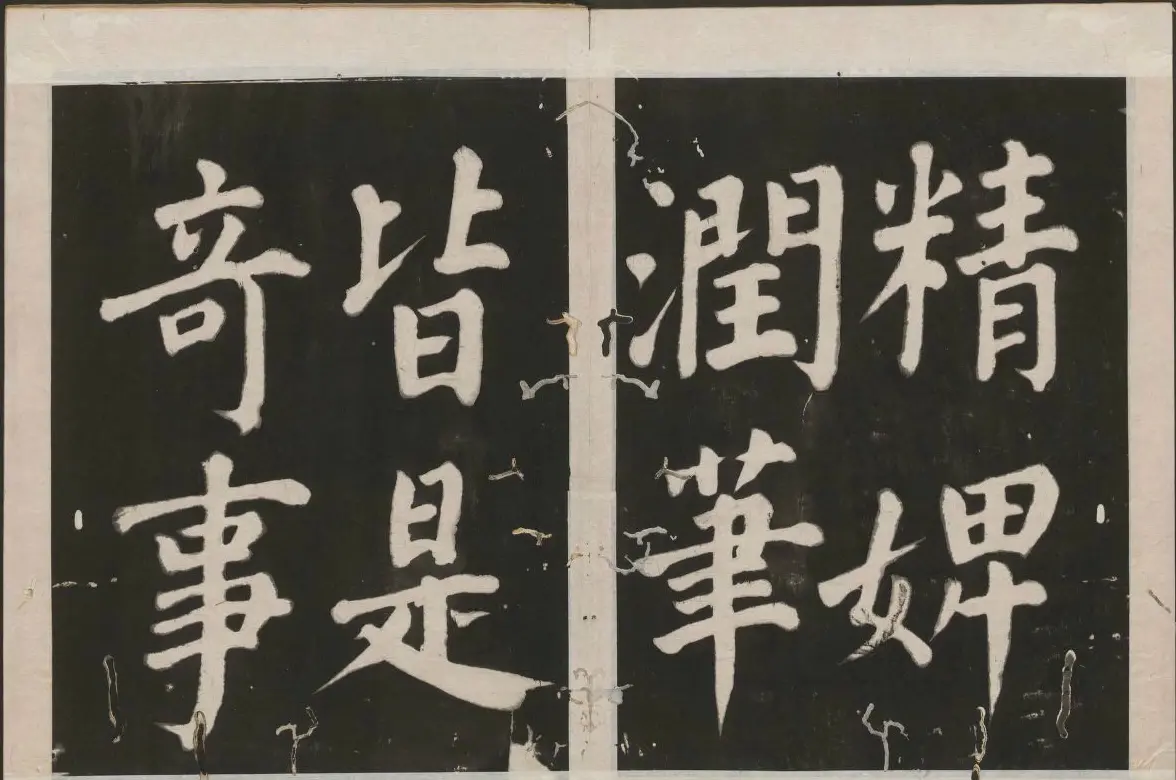 精婢
潤筆
皆是
奇事